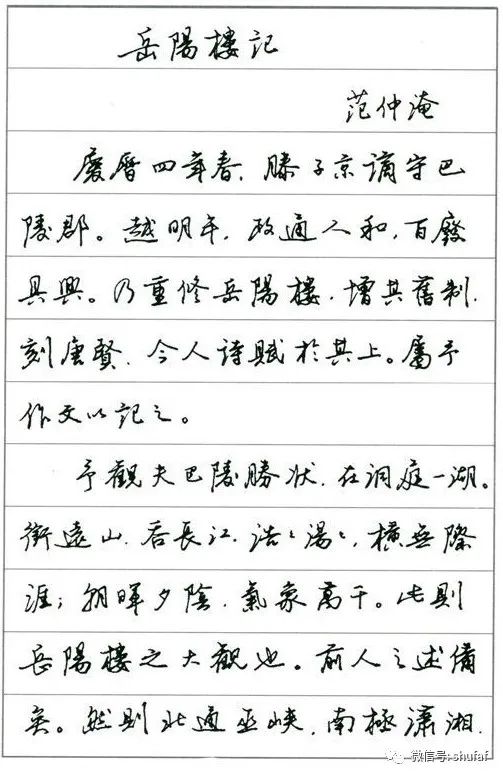 岳陽樓記
范仲淹
慶曆四年春、滕子京謫守巴
陵郡。越明年，政通人和，百廢
具興。乃重修岳陽樓，增其舊制，
刻唐賢、今人詩賦於其上。屬予
作文以記之。
予觀夫巴陵勝狀，在洞庭一湖。
銜遠山，吞長江，浩〻湯〻，橫無際
涯；朝暉夕陰，氣象萬千。此則
岳陽樓之大觀也。前人之述備
矣。然則北通巫峽，南極瀟湘，
微信号: shufaf